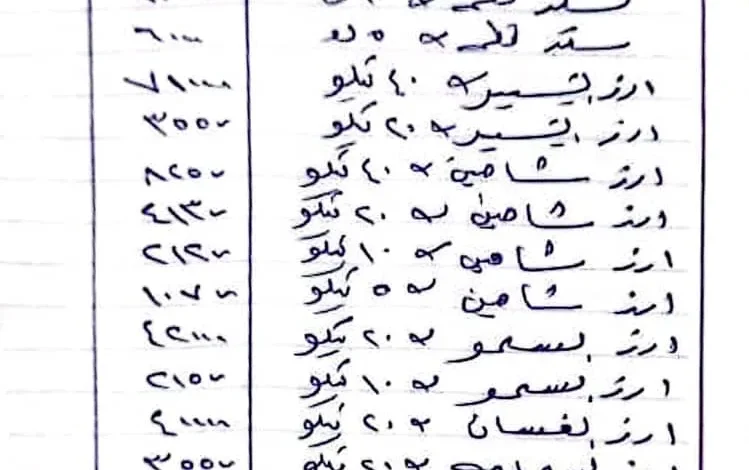 سكر قطمه 5 كو ٦٠٠٠
ارز التيسير 40 كيلو ٧١٠٠٠
ارز التيسير ٢٠ كيلو ٣٥٥٠٠
ارز شاهين ٤٠ كيلو ٨٢٥٠٠
ارز شاهين ٢٠ كيلو ٤١٣٠٠
ارز شاهين ١٠ كيلو ٢١٢٠٠
ارز شاهين ٥ كيلو ١٠٧٠٠
ارز بسمو ٢٠ كيلو ٤٢٠٠٠
ارز بسمو ١٠ كيلو ٢١٥٠٠
ارز الفسان ٢٠ كيلو ٤٠٠٠٠
ارز ٢٠ كيلو ٣٥٥٠٠